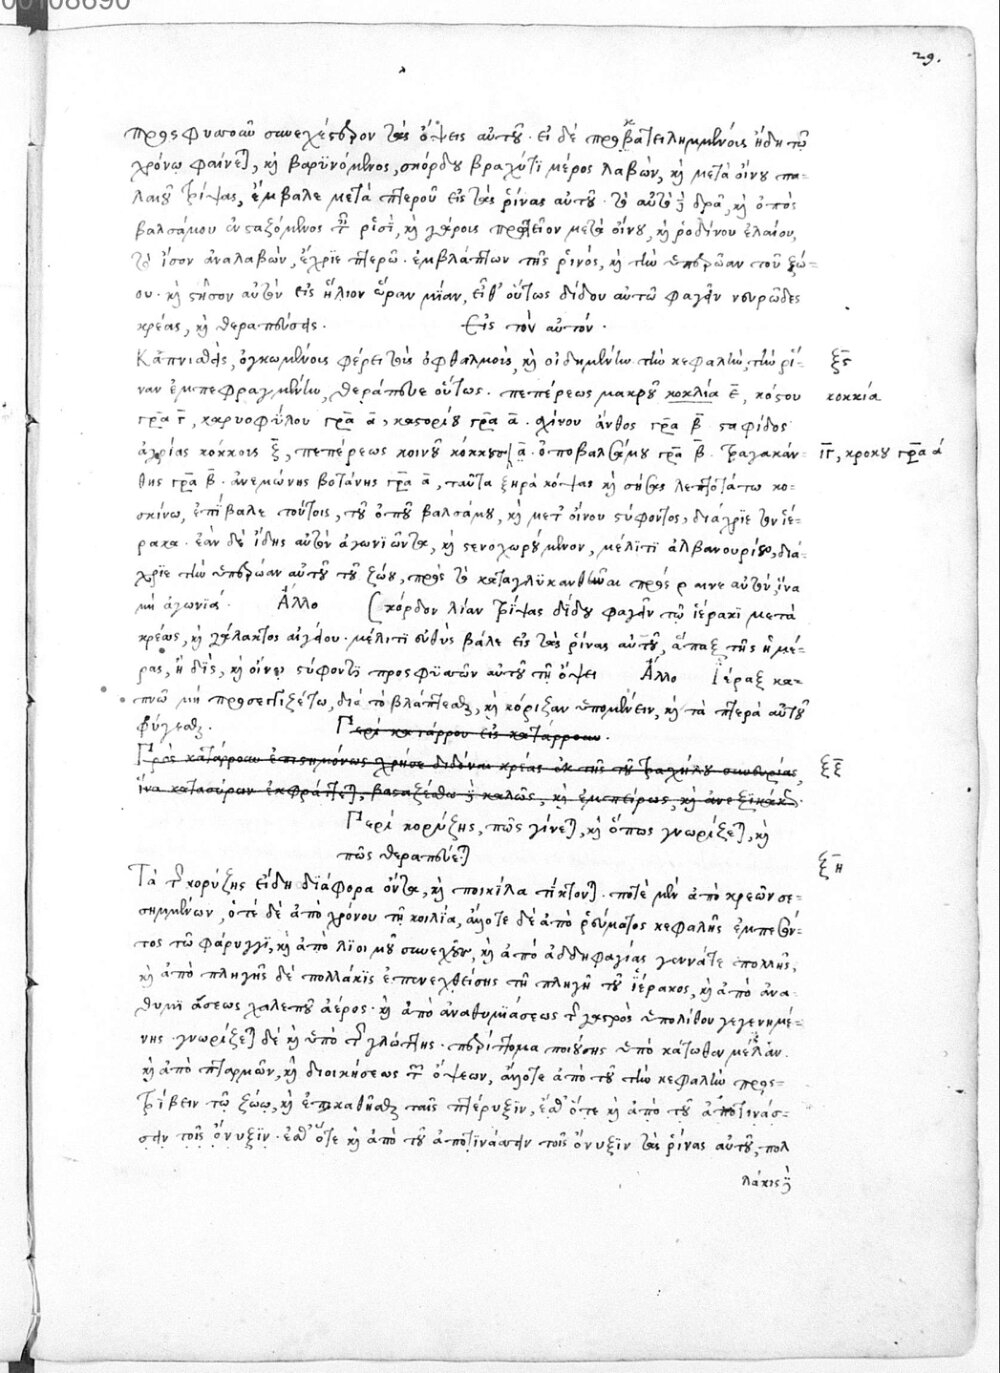 00108690
29.
προσφυσῶν συνεχέστερον τὰς ὄψεις αὐτοῦ. εἰ δὲ προβατειλημμένοις ἤδη τῷ
χρόνῳ φαίνεται, καὶ βαρυνόμενος, σκόρδου βραχύτι μέρος λαβὼν, καὶ μετὰ οἴνου πα-
λαιοῦ τρίψας, ἔμβαλε μετὰ πτεροῦ εἰς τὰς ῥίνας αὐτοῦ. τὸ αὐτὸ δρᾷ, καὶ ὀπὸς
βαλσάμου ἐνσταζόμενος ταῖς ῥισὶ, καὶ μετὰ οἴνου, καὶ ῥοδίνου ἐλαίου,
τὸ ἴσον ἀναλαβὼν, ἔχριε πτερῷ. ἐμβλάπτων τῆς ῥινός, καὶ τὴν ὑπερῴαν τοῦ ζώ-
ου. καὶ στῆσον αὐτὸν εἰς ἥλιον ὥραν μίαν, εἶθ' οὕτως δίδου αὐτῷ φαγεῖν νευρῶδες
κρέας, καὶ θεραπεύσεις. Εἰς τὸν αὐτόν.
Καπνιαθεὶς, ὀγκωμένοις φέρει τοῖς ὀφθαλμοῖς, καὶ οἰδημένην τὴν κεφαλὴν, τὴν ῥῖ- ξϛ
ναν ἐμπεφραγμένην, θεράπευε οὕτως. πεπέρεως μακροῦ κοκλία ε, κόστου κοκκία
γρα γ, καρυοφύλου γρα α, καστορίου γρα α. σχίνου ἄνθος γρα β σταφίδος
ἀγρίας κόκκοις ξ, πεπέρεως κοινοῦ κόκκους α. ὀποβαλσάμου γρα β. τραγακάν- ιγ, κρόκου γρα α
θης γρα β. ἀνεμώνης βοτάνης γρα α, ταῦτα ξηρὰ κόψας καὶ σήσας λεπτοτάτῳ κο-
σκίνῳ, ἐπίβαλε τούτοις, τοῦ ὀποῦ βαλσάμου, καὶ μετ' οἴνου στύφοντος, διάχριε τὸν ἱέ-
ρακα. ἐὰν δὲ ἴδῃς αὐτὸν ἀγωνιῶντα, καὶ στενοχωρούμενον, μέλιτι ἀλβανουρίῳ, διά-
χριε τὴν ὑπερῴαν αὐτοῦ τοῦ ζώου, πρὸς τὸ καταγλυκανθῆναι πρὸς ῥαινε αὐτὸν, ἵνα
μὴ ἀγωνιᾷ. Ἄλλο Σκόρδον λίαν τρίψας δίδου φαγεῖν τῷ ἱέρακι μετὰ
κρέως, καὶ γάλακτος αἰγείου. μέλιτι εὐθὺς βάλε εἰς τὰς ῥίνας αὐτοῦ, ἅπαξ τῆς ἡμέ-
ρας, ἢ δὶς, καὶ οἴνῳ στύφοντι προσφυσῶν αὐτοῦ τῇ ὄψει Ἄλλο Ἱέραξ κα-
πνῷ μὴ προσεγγιζέτω, διὰ τὸ βλάπτεσθαι, καὶ κόριζαν ὑπομένειν, καὶ τὰ πτερὰ αὐτοῦ
φύγεσθαι. Περὶ κατάρρου εἰς κατάρροιαν.
Πρὸς κατάρροιαν ἐπιστημόνως χρῆσε διδόναι κρέας ἐκ τῆς τοῦ τραχήλου συνθυρίας, ξξ
ἵνα κατασύρων ἐκφράττεται, βασταξέσθω καλῶς, καὶ ἐμπείρως, καὶ ἀνεξικάκως.
Περὶ κορύζης, πῶς γίνεται, καὶ ὅπως γνωρίζεται, καὶ
πῶς θεραπεύεται ξη
Τὰ τῆς κορύζης εἴδη διάφορα ὄντα, καὶ ποικίλα τίκτονται. ποτὲ μὲν ἀπὸ κρεῶν σε-
σημμένων, ὁτὲ δὲ ἀπὸ χρόνου τῇ κοιλίᾳ, ἄλλοτε δὲ ἀπὸ ῥεύματος κεφαλῆς ἐμπεσόν-
τος τῷ φάρυγγι, καὶ ἀπὸ λιμοῦ συνεχοῦς, καὶ ἀπὸ ἀδδηφαγίας γεννᾶται πολλῆς,
καὶ ἀπὸ πληγῆς δὲ πολλάκις ἐπενεχθείσης τῇ πληγῇ τοῦ ἱέρακος, καὶ ἀπὸ ἀνα-
θυμιάσεως χαλεποῦ ἀέρος. καὶ ἀπὸ ἀναθυμιάσεως τῆς γαστρὸς ὑπολίθου γεγενημέ-
νης. γνωρίζεται δὲ καὶ ὑπὸ τῆς γλώττης. περίπτομα ποιούσης ὑπὸ κάτωθεν μέλαν.
καὶ ἀπὸ πταρμῶν, καὶ διοικήσεως τῶν ὄψεων, ἄλλοτε ἀπὸ τοῦ τὴν κεφαλὴν προσ-
τρίβειν τῷ ζώῳ, καὶ ἐπικαθῆσθαι ταῖς πτέρυξιν, ἔσθ' ὅτε καὶ ἀπὸ τοῦ ἀποτινάσ-
σειν τοῖς ὄνυξιν. ἔσθ' ὅτε καὶ ἀπὸ τοῦ ἀποτινάσσειν τοῖς ὄνυξιν τὰς ῥίνας αὐτοῦ, πολ
λάκις